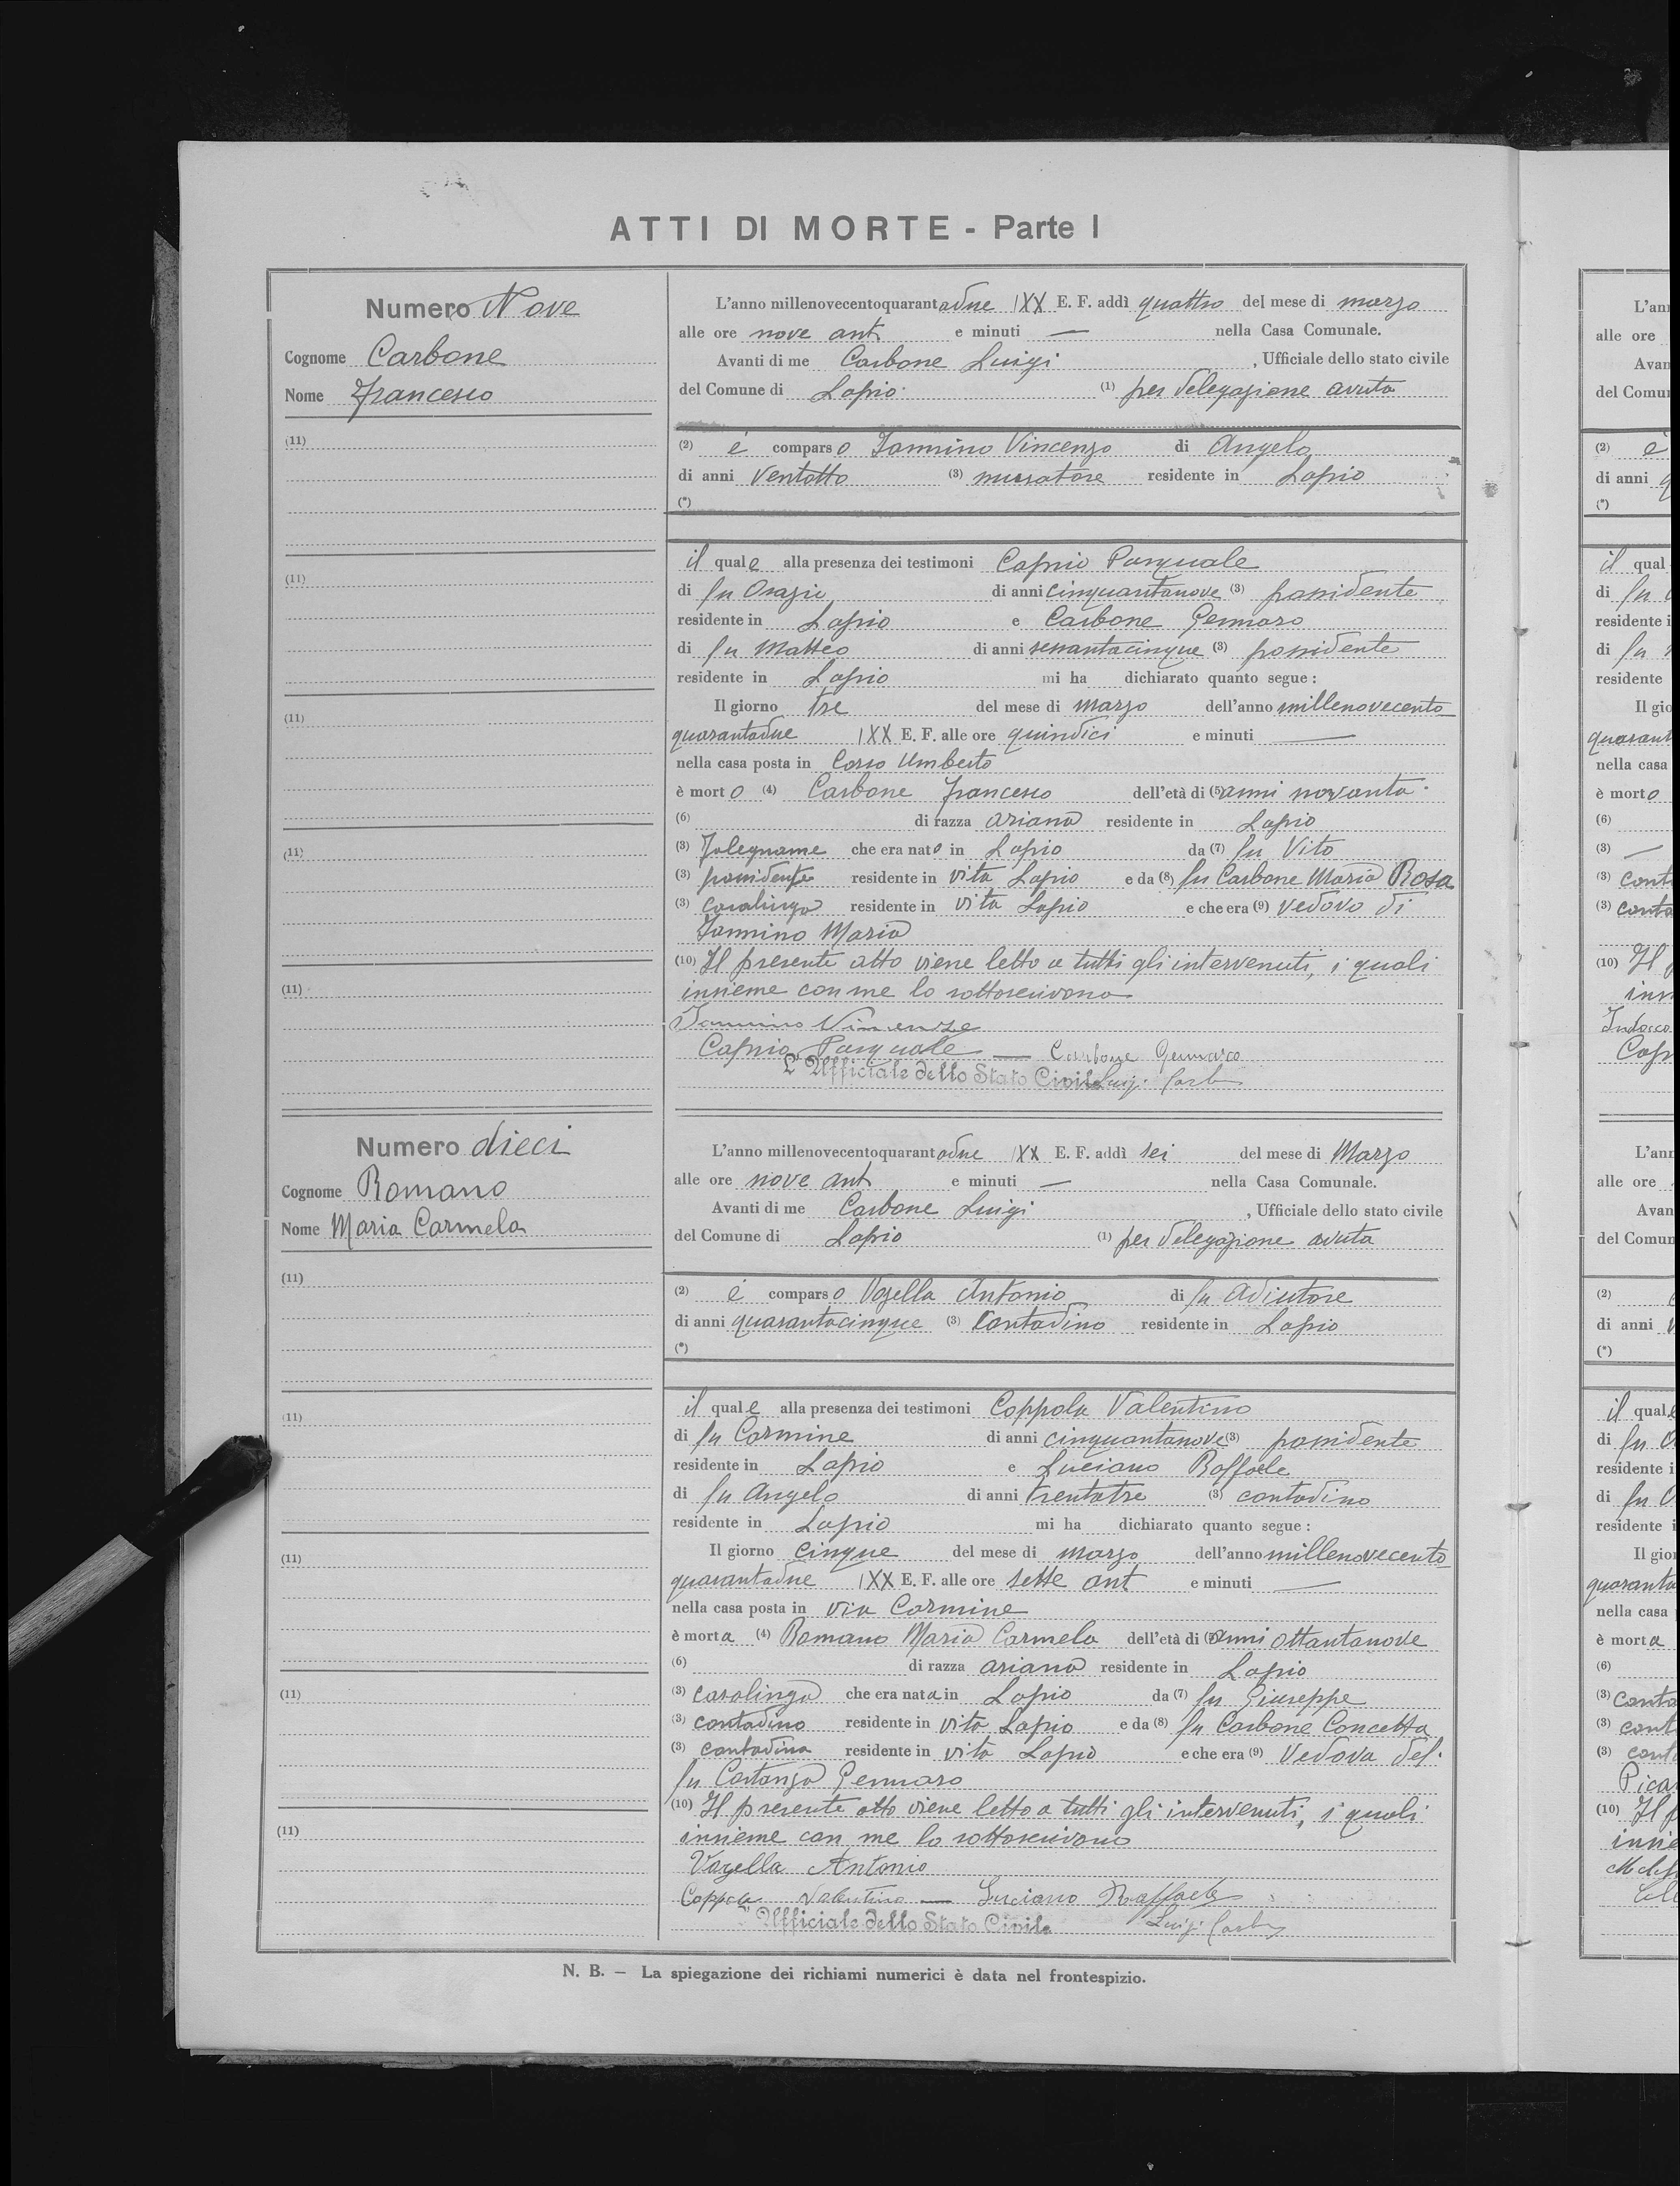 ATTI DI MORTE - Parte I
Numero Nove
Cognome Carbone
Nome Francesco
(11)
(11)
(11)
(11)
(11)
L'anno millenovecentoquarantadue IXX E. F. addì quattro del mese di marzo
alle ore nove ant e minuti — nella Casa Comunale.
Avanti di me Carbone Luigi , Ufficiale dello stato civile
del Comune di Lapio (1) per delegazione avuta
(2) è comparso Iannino Vincenzo di Angelo
di anni ventotto (3) muratore residente in Lapio
(*)
il quale alla presenza dei testimoni Caprio Pasquale
di fu Orazio di anni cinquantanove (3) possidente
residente in Lapio e Carbone Gennaro
di fu Matteo di anni sessantacinque (3) possidente
residente in Lapio mi ha dichiarato quanto segue :
Il giorno tre del mese di marzo dell'anno millenovecento
quarantadue IXX E. F. alle ore quindici e minuti —
nella casa posta in Corso Umberto
è morto (4) Carbone Francesco dell'età di (5) anni novanta
(6) di razza ariana residente in Lapio
(3) Falegname che era nato in Lapio da (7) fu Vito
(3) possidente residente in vita Lapio e da (8) fu Carbone Maria Rosa
(3) casalinga residente in vita Lapio e che era (9) vedovo di
Iannino Maria
(10) Il presente atto viene letto a tutti gli intervenuti, i quali
insieme con me lo sottoscrivono
Iannino Vincenzo
Caprio Pasquale — Carbone Gennaro
L'Ufficiale dello Stato Civile Luigi Carbone
Numero dieci
Cognome Romano
Nome Maria Carmela
(11)
(11)
(11)
(11)
(11)
L'anno millenovecentoquarantadue IXX E. F. addì sei del mese di Marzo
alle ore nove ant e minuti — nella Casa Comunale.
Avanti di me Carbone Luigi , Ufficiale dello stato civile
del Comune di Lapio (1) per delegazione avuta
(2) è comparso Vozella Antonio di fu Adiutore
di anni quarantacinque (3) Contadino residente in Lapio
(*)
il quale alla presenza dei testimoni Coppola Valentino
di fu Carmine di anni cinquantanove (3) possidente
residente in Lapio e Luciano Raffaele
di fu Angelo di anni trentatre (3) contadino
residente in Lapio mi ha dichiarato quanto segue :
Il giorno cinque del mese di marzo dell'anno millenovecento
quarantadue IXX E. F. alle ore sette ant e minuti —
nella casa posta in via Carmine
è morta (4) Romano Maria Carmela dell'età di (5) anni ottantanove
(6) di razza ariana residente in Lapio
(3) casalinga che era nata in Lapio da (7) fu Giuseppe
(3) contadino residente in vita Lapio e da (8) fu Carbone Concetta
(3) contadina residente in vita Lapio e che era (9) vedova del
fu Costanza Gennaro
(10) Il presente atto viene letto a tutti gli intervenuti, i quali
insieme con me lo sottoscrivono
Vozella Antonio
Coppola Valentino — Luciano Raffaele
L'Ufficiale dello Stato Civile Luigi Carbone
N. B. — La spiegazione dei richiami numerici è data nel frontespizio.